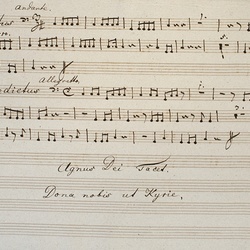 Andante.
Allegretto
dictus
Agnus Dei Tacet.
Dona nobis ut Kyrie.